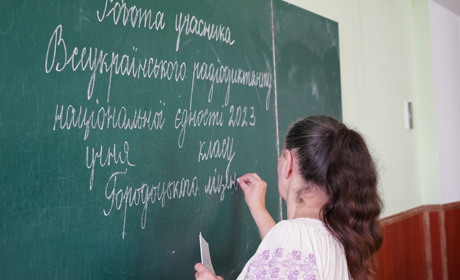 Робота учасника
Всеукраїнського радіодиктанту
національної єдності 2023
учня класу
Городоцького ліцею